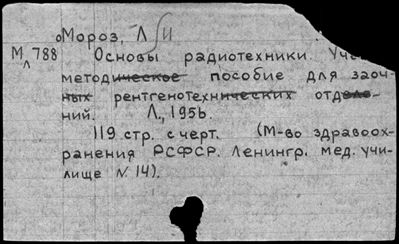 Мороз, Л И
М 788 Основы радиотехники. Уче
методическое пособие для заоч-
ных рентгенотехнических отделе-
ний. Л., 1956.
119 стр. с черт. (М-во здравоох-
ранения РСФСР. Ленингр. мед. учи-
лище N 14).